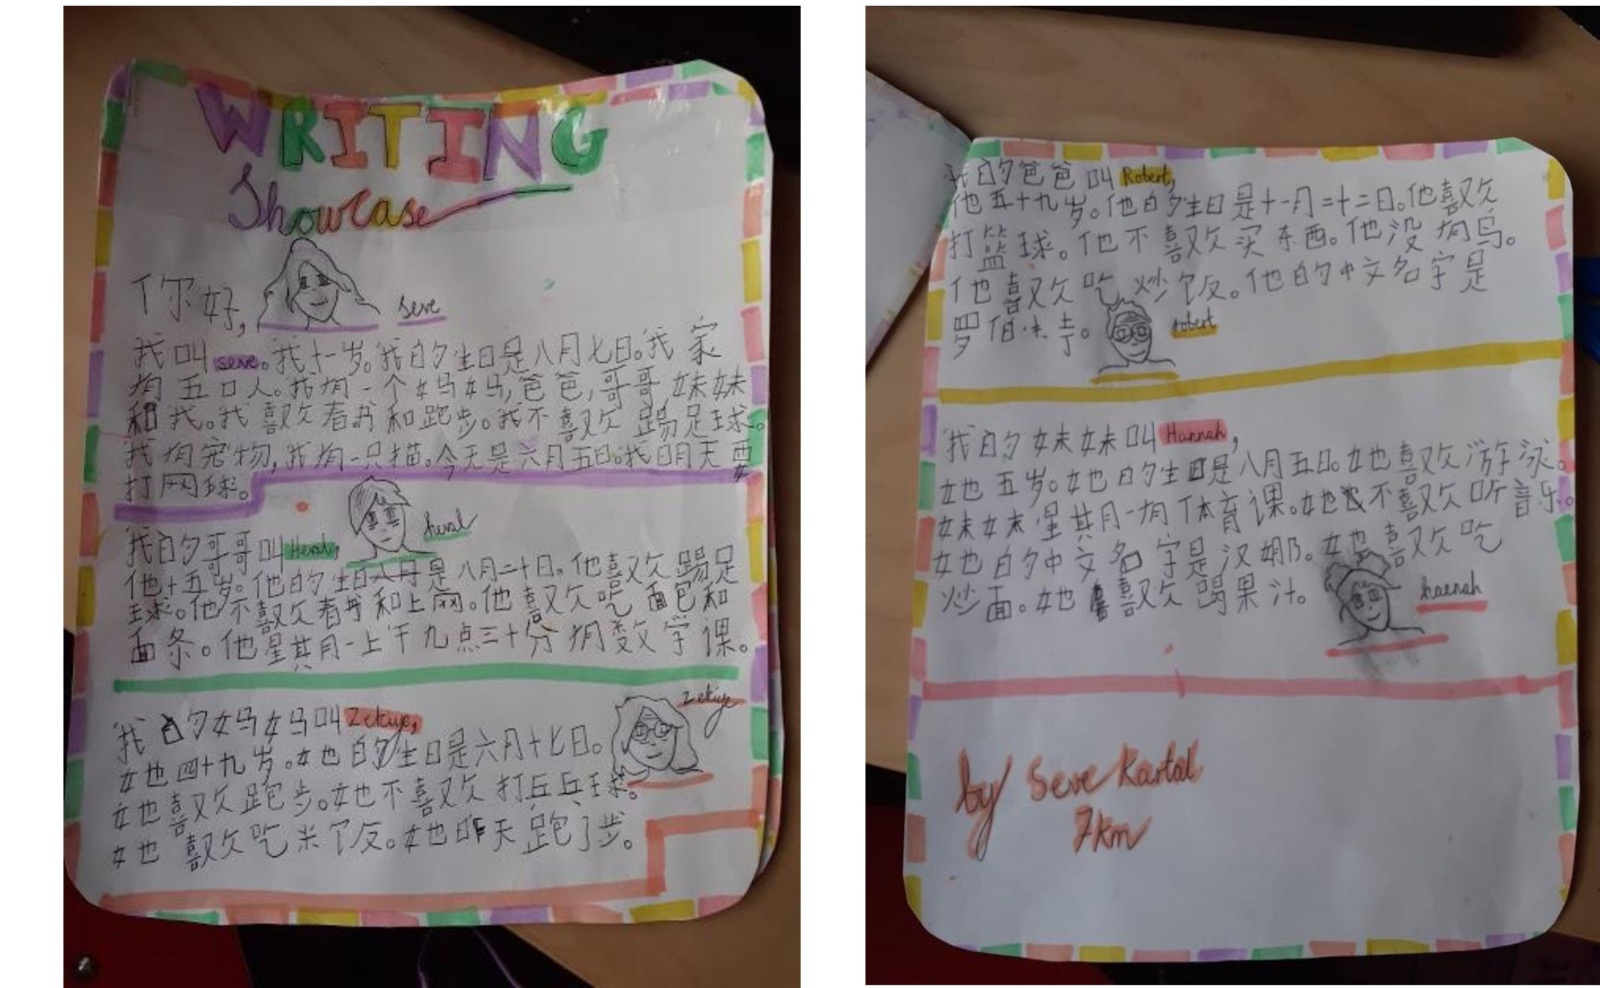 WRITING
Showcase
你好,
seve
我叫seve。我十一岁。我的生日是八月七日。我家
有五口人。我有一个妈妈,爸爸,哥哥妹妹
和我。我喜欢看书和跑步。我不喜欢踢足球。
我有宠物,我有一只描。今天是六月五日。我明天要
打网球。
heval
我的哥哥叫Heval,
他十五岁。他的生日是八月二十日。他喜欢踢足
球。他不喜欢看书和上网。他喜欢吃面包和
面条。他星期一上午九点三十分有数学课。
Zekiye
我的妈妈叫Zekiye,
她四十九岁。她的生日是六月十七日。
她喜欢跑步。她不喜欢打乒乓球。
她喜欢吃米饭。她昨天跑了步。
我的爸爸叫Robert,
他五十九岁。他的生日是十一月二十二日。他喜欢
打篮球。他不喜欢买东西。他没有鸟。
他喜欢吃炒饭。他的中文名字是
罗伯特。
robert
我的妹妹叫Hannah,
她五岁。她的生日是八月五日。她喜欢游泳。
妹妹星期一有体育课。她不喜欢听音乐。
她的中文名字是汉娜。她喜欢吃
炒面。她喜欢喝果汁。
hannah
by Seve Kartal
7km